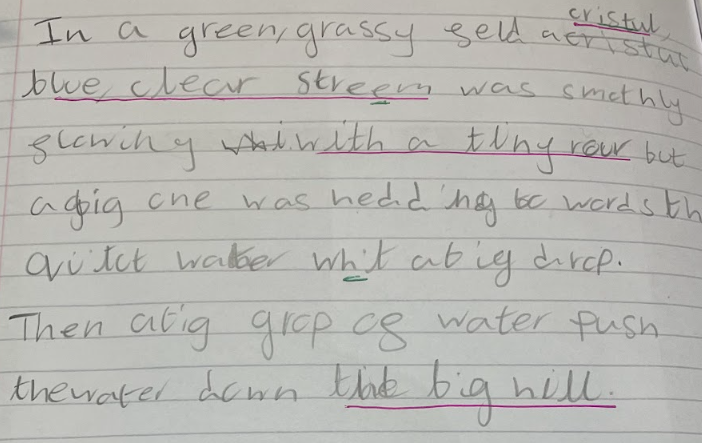 cristul,
In a green, grassy feld a cristul
blue, clear streem was smothly
flowing with a tiny rour but
a big one was hedding to words th
quitct water whit a big drop.
Then a big grop of water push
thewater down the big hill.